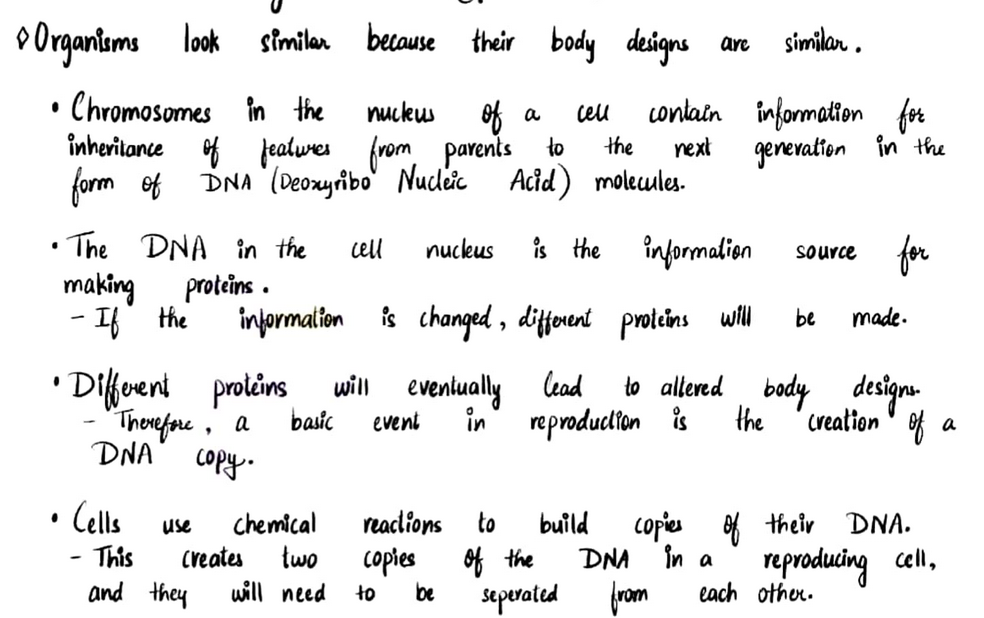 ◊ Organisms look similar because their body designs are similar.
• Chromosomes in the nucleus of a cell contain information for
inheritance of features from parents to the next generation in the
form of DNA (Deoxyribo Nucleic Acid) molecules.
• The DNA in the cell nucleus is the information source for
making proteins.
- If the information is changed, different proteins will be made.
• Different proteins will eventually lead to altered body designs.
- Therefore, a basic event in reproduction is the creation of a
DNA copy.
• Cells use chemical reactions to build copies of their DNA.
- This creates two copies of the DNA in a reproducing cell,
and they will need to be seperated from each other.